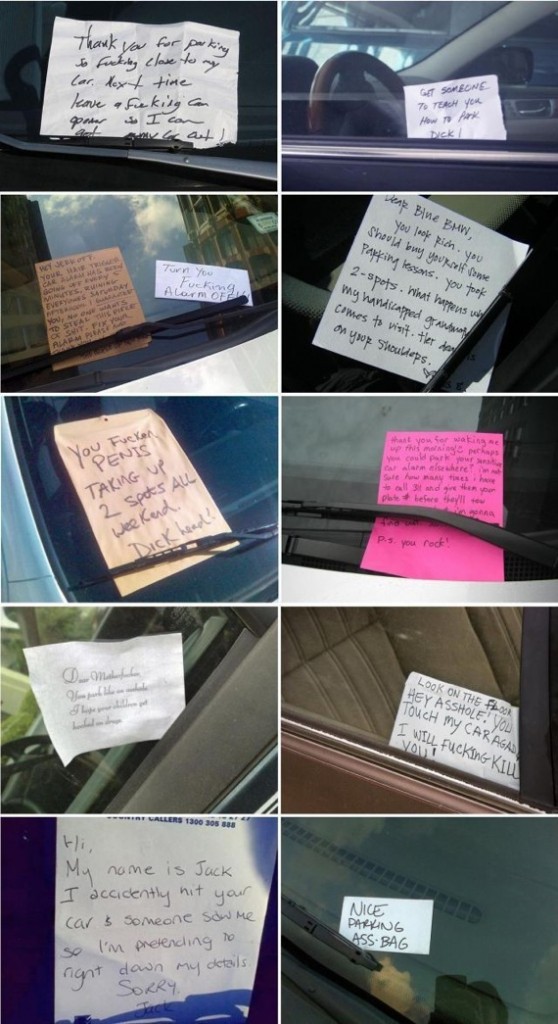 Thank you for parking
so fucking close to my
car. Next time
leave a fucking can
opener so I can
get my car out!
GET SOMEONE
TO TEACH YOU
HOW TO PARK
DICK!
HEY JERKOFF,
YOUR HAIR TRIGGER
CAR ALARM HAS BEEN
GOING OFF EVERY 5
MINUTES, RUINING
EVERYONES SATURDAY
AFTERNOON. I GUARANTEE
YOU NO ONE WANTS
TO STEAL THIS PIECE
OF SHIT. FIX YOUR
ALARM
Turn You
Fucking
Alarm OFF!!
Dear Blue BMW,
you look rich. you
should buy yourself some
parking lessons. you took
2-spots. What happens wh
my handicapped grandma
comes to visit. Her
on your shoulders.
You Fucken
PENIS
TAKING UP
2 spots ALL
weekend.
Dick head!
thank you for waking me
up this morning! perhaps
you could park your sensitive
car alarm elsewhere? i'm not
sure how many times i have
to call 311 and give them your
plate # before they'll tow
i'm gonna
find out
p.s. you rock!
Dear Motherfucker,
You park like an asshole.
I hope your children get
hooked on drugs.
LOOK ON THE FLOOR
HEY ASSHOLE! YOU
TOUCH MY CAR AGAIN
I WILL FUCKING KILL
YOU!
COUNTRY CALLERS 1300 305 888
Hi,
My name is Jack
I accidently hit your
car & someone saw me
so I'm pretending to
right down my details
SORRY
Jack
NICE
PARKING
ASS-BAG